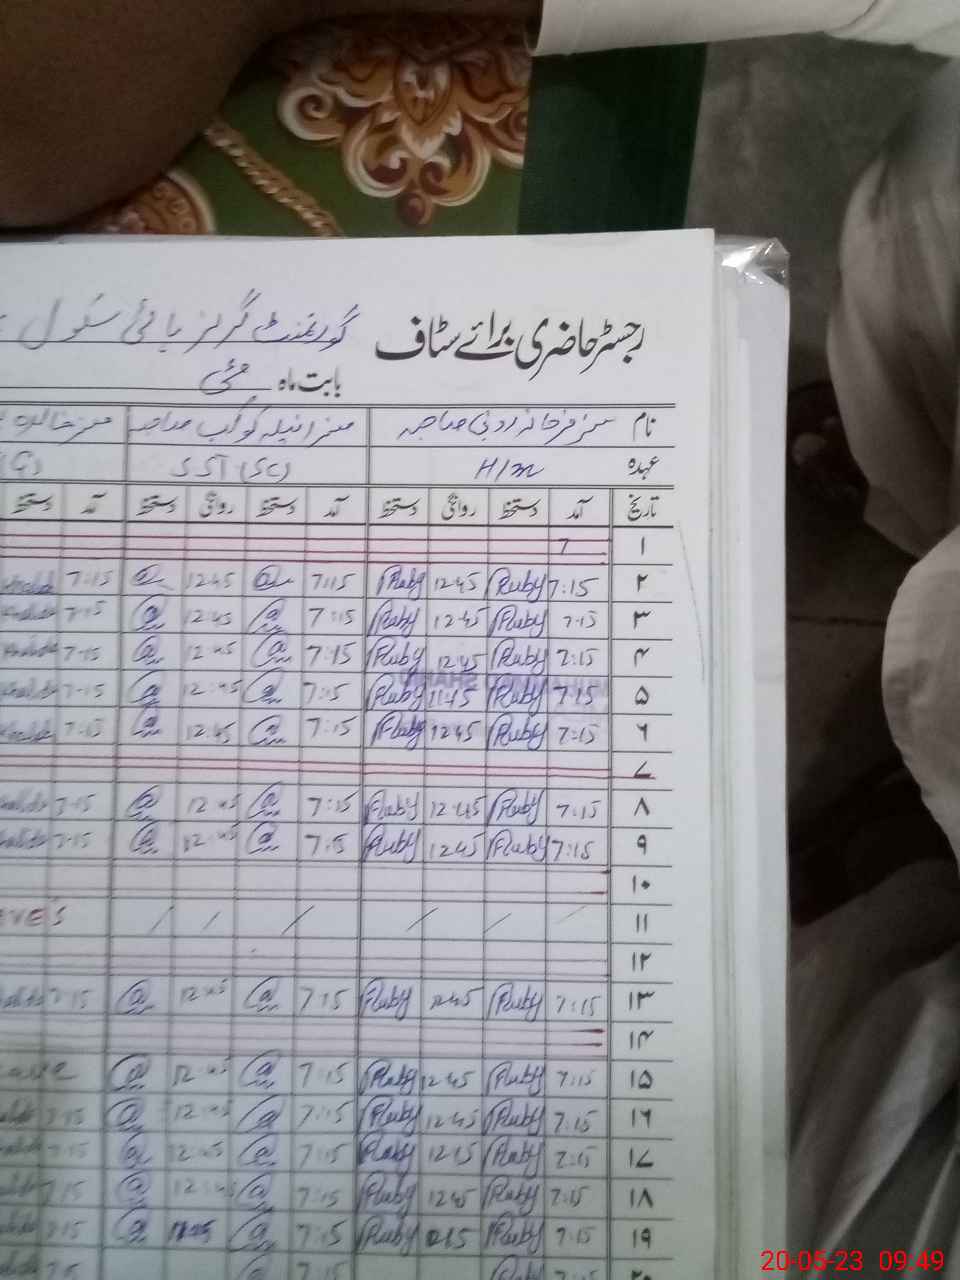 رجسٹر حاضری برائے سٹاف گورنمنٹ گرلز ہائی سکول
بابت ماہ مئی
نام مسز فرحانہ روبی صاحبہ مسز انیلہ کوکب صاحبہ مسز خالدہ
عہدہ H/m SST (SC)
تاریخ آمد دستخط روانگی دستخط آمد دستخط روانگی دستخط آمد دستخط
۱ 7
۲ 7:15 Ruby 12 45 Ruby 7:15 12 45 7:15
۳ 7-15 Ruby 12-45 Ruby 7:15 12:45 7-15
۴ 7:15 Ruby 12:45 Ruby 7:15 12:45 7-15
۵ 7:15 Ruby 11:15 Ruby 7:15 12:45 7-15
۶ 7:15 Ruby 12 45 Ruby 7:15 12:45 7:15
۷
۸ 7:15 Ruby 12:45 Ruby 7:15 12:45 7-15
۹ 7:15 Ruby 12 45 Ruby 7:5 12:45 7-15
۱۰
۱۱ / / / / / /
۱۲
۱۳ 7:15 Ruby 12:45 Ruby 7:15 12:45 7-15
۱۴
۱۵ 7:15 Ruby 12:45 Ruby 7:15 12:45
۱۶ 7:15 Ruby 12:45 Ruby 7:15 12:45 7:15
۱۷ 7:15 Ruby 12:15 Ruby 7:15 12:45 7:15
۱۸ 7:15 Ruby 12 45 Ruby 7:15 12:45 7:15
۱۹ 7:15 Ruby Ruby 7:15 7:15
۲۰
20-05-23 09:49